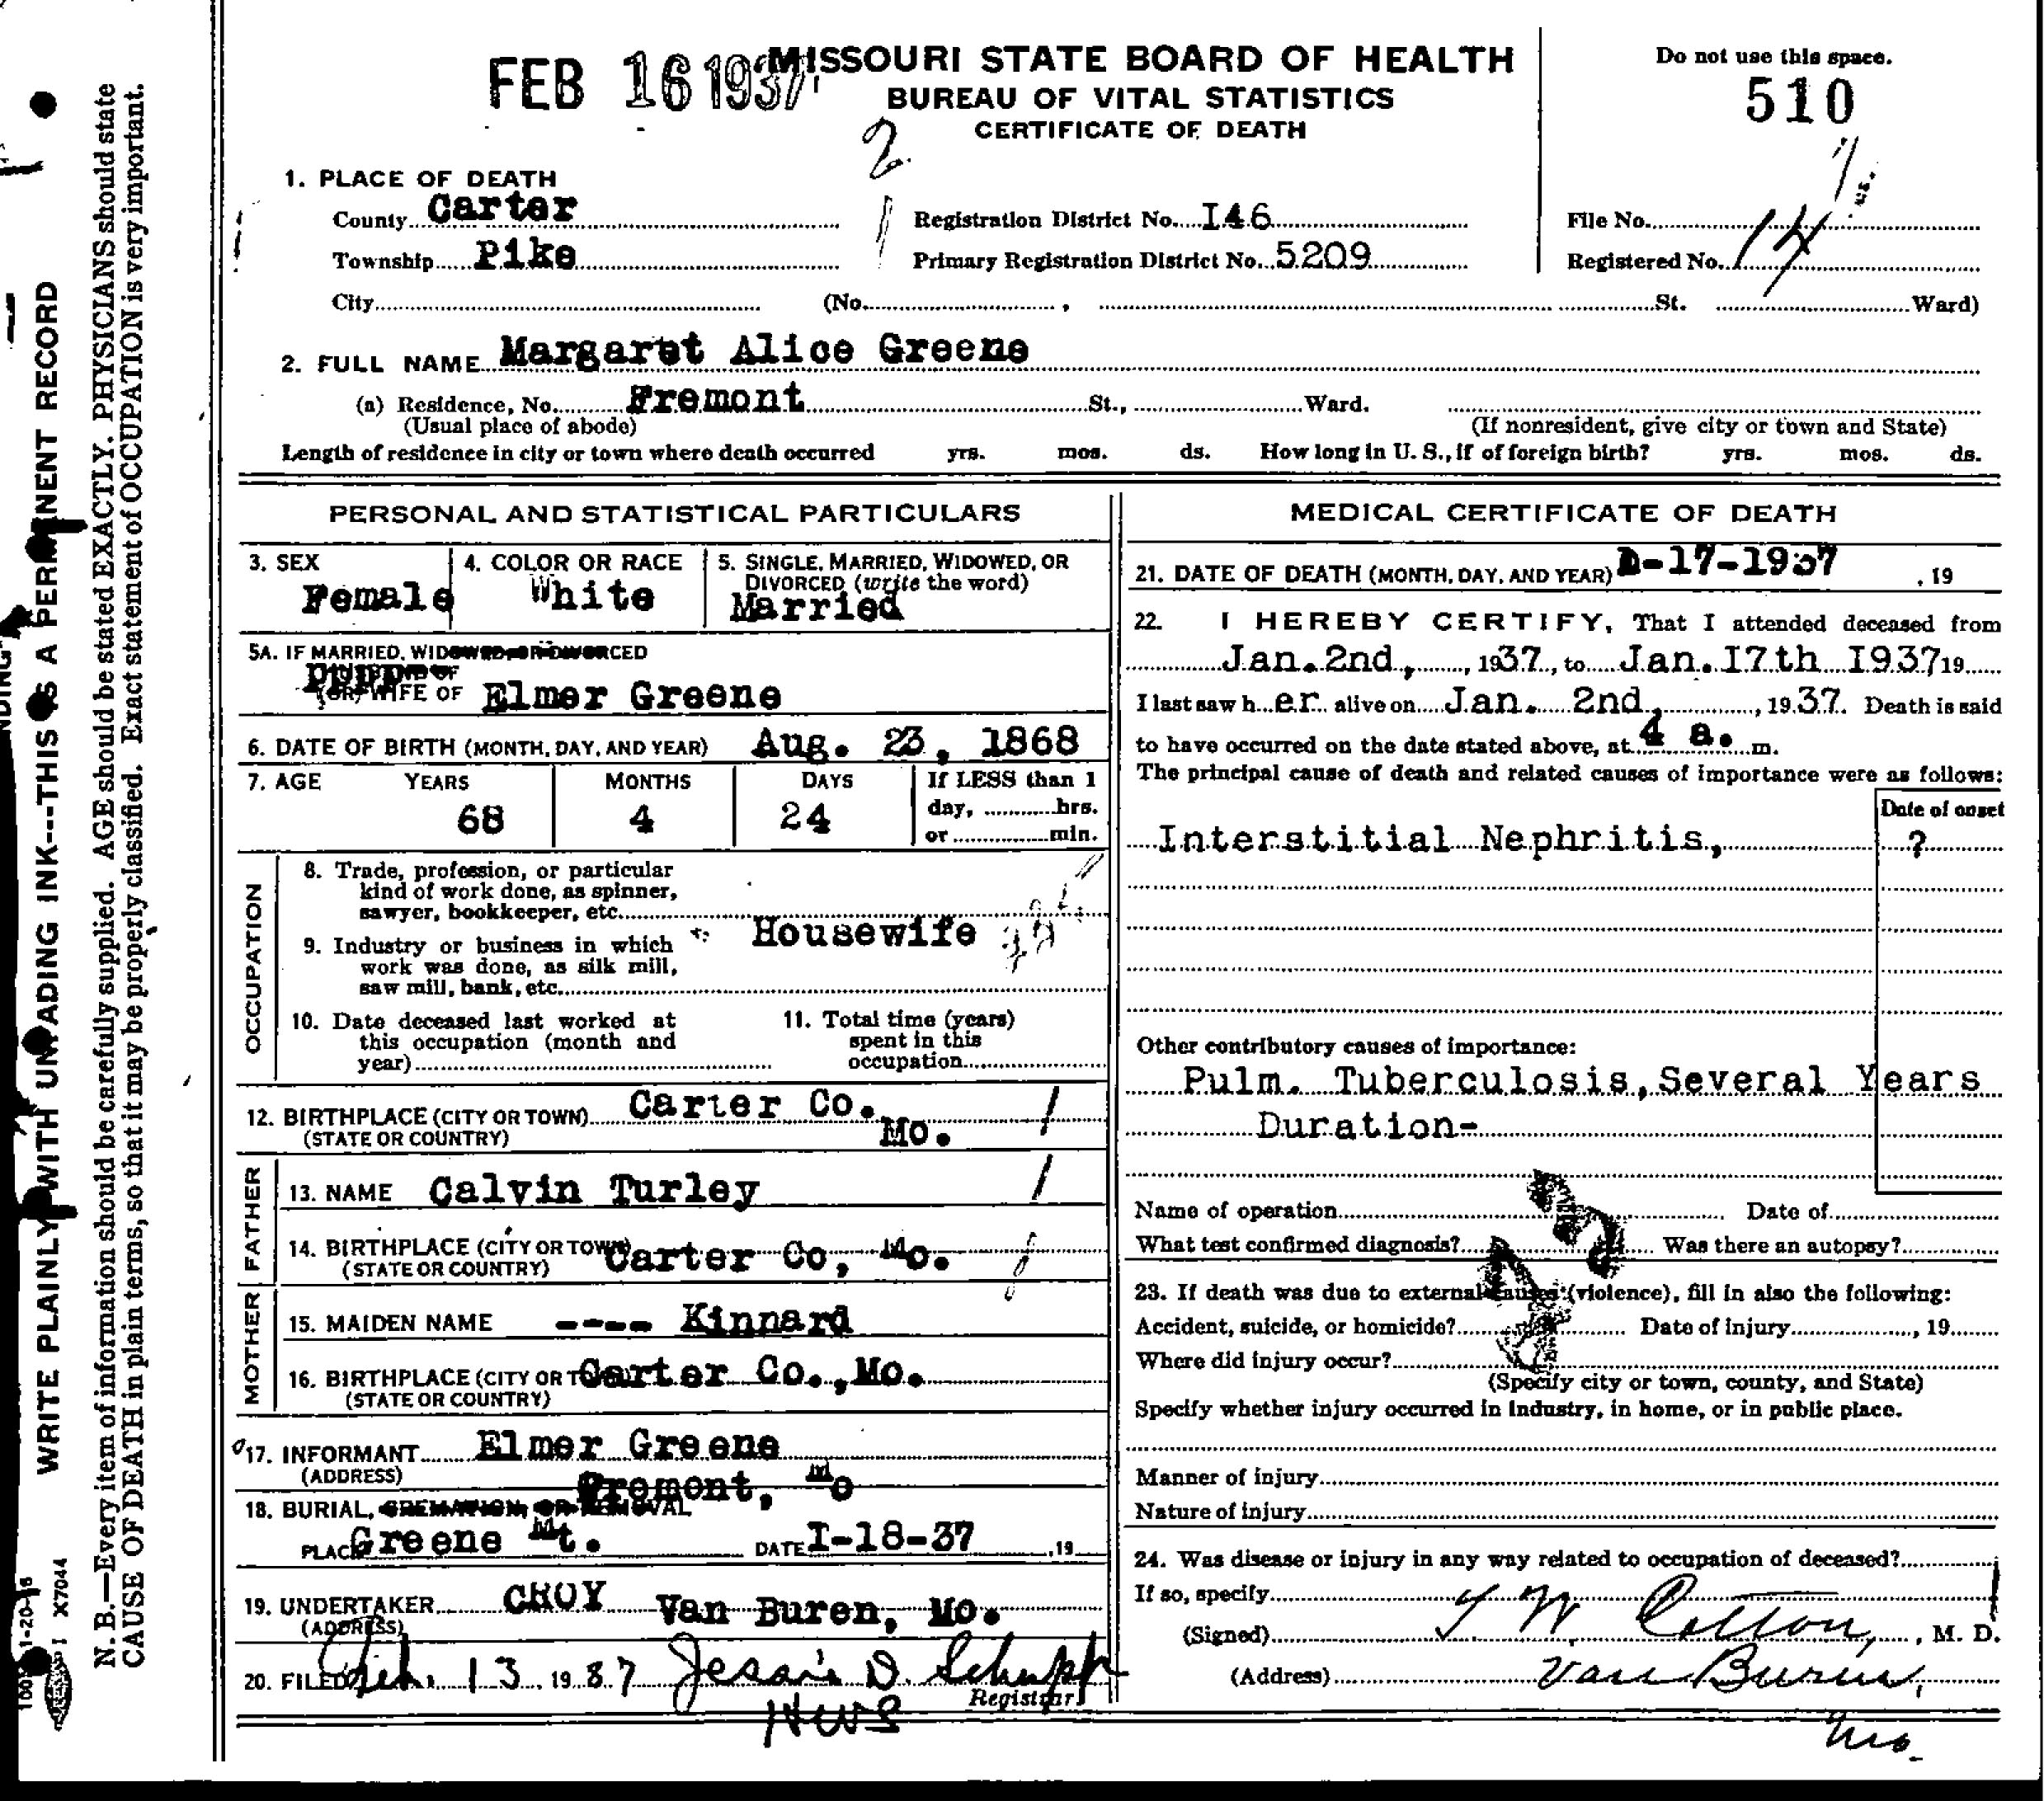 FEB 16 1937
MISSOURI STATE BOARD OF HEALTH
BUREAU OF VITAL STATISTICS
CERTIFICATE OF DEATH
Do not use this space.
510
2
1. PLACE OF DEATH
County Carter
Township Pike
City (No. , St. Ward)
Registration District No. I46
Primary Registration District No. 5209
File No.
Registered No. 14
2. FULL NAME Margaret Alice Greene
(a) Residence, No. Fremont St., Ward.
(Usual place of abode) (If nonresident, give city or town and State)
Length of residence in city or town where death occurred yrs. mos. ds. How long in U. S., if of foreign birth? yrs. mos. ds.
PERSONAL AND STATISTICAL PARTICULARS
3. SEX
Female
4. COLOR OR RACE
White
5. SINGLE, MARRIED, WIDOWED, OR
DIVORCED (write the word)
Married
5A. IF MARRIED, WIDOWED, OR DIVORCED
(OR) WIFE OF Elmer Greene
6. DATE OF BIRTH (MONTH, DAY, AND YEAR) Aug. 23, 1868
7. AGE YEARS MONTHS DAYS If LESS than 1
day, hrs.
or min.
68 4 24
OCCUPATION
8. Trade, profession, or particular
kind of work done, as spinner,
sawyer, bookkeeper, etc.
Housewife
9. Industry or business in which
work was done, as silk mill,
saw mill, bank, etc.
10. Date deceased last worked at
this occupation (month and
year)
11. Total time (years)
spent in this
occupation
12. BIRTHPLACE (CITY OR TOWN) Carter Co.
(STATE OR COUNTRY) Mo.
FATHER
13. NAME Calvin Turley
14. BIRTHPLACE (CITY OR TOWN) Carter Co, Mo.
(STATE OR COUNTRY)
MOTHER
15. MAIDEN NAME ---- Kinnard
16. BIRTHPLACE (CITY OR TOWN) Carter Co.,Mo.
(STATE OR COUNTRY)
17. INFORMANT Elmer Greene
(ADDRESS) Fremont, Mo
18. BURIAL, CREMATION, OR REMOVAL
PLACE Greene Mt. DATE I-18-37 ,19
19. UNDERTAKER CROY Van Buren, Mo.
(ADDRESS)
20. FILED Feb. 13, 1937 Jessie D. Schupp
Registrar
HWS
MEDICAL CERTIFICATE OF DEATH
21. DATE OF DEATH (MONTH, DAY, AND YEAR) -17-1937 , 19
22. I HEREBY CERTIFY, That I attended deceased from
Jan. 2nd, , 1937, to Jan. 17th I937 19
I last saw h er alive on Jan. 2nd , 1937. Death is said
to have occurred on the date stated above, at 4 a. m.
The principal cause of death and related causes of importance were as follows:
Date of onset
Interstitial Nephritis, ?
Other contributory causes of importance:
Pulm. Tuberculosis, Several Years
Duration-
Name of operation Date of
What test confirmed diagnosis? Was there an autopsy?
23. If death was due to external causes (violence), fill in also the following:
Accident, suicide, or homicide? Date of injury , 19
Where did injury occur?
(Specify city or town, county, and State)
Specify whether injury occurred in industry, in home, or in public place.
Manner of injury
Nature of injury
24. Was disease or injury in any way related to occupation of deceased?
If so, specify
(Signed) T W Cotton, , M. D.
(Address) Van Buren,
Mo.
WRITE PLAINLY WITH UNFADING INK---THIS IS A PERMANENT RECORD
N. B.—Every item of information should be carefully supplied. AGE should be stated EXACTLY. PHYSICIANS should state
CAUSE OF DEATH in plain terms, so that it may be properly classified. Exact statement of OCCUPATION is very important.
X7044